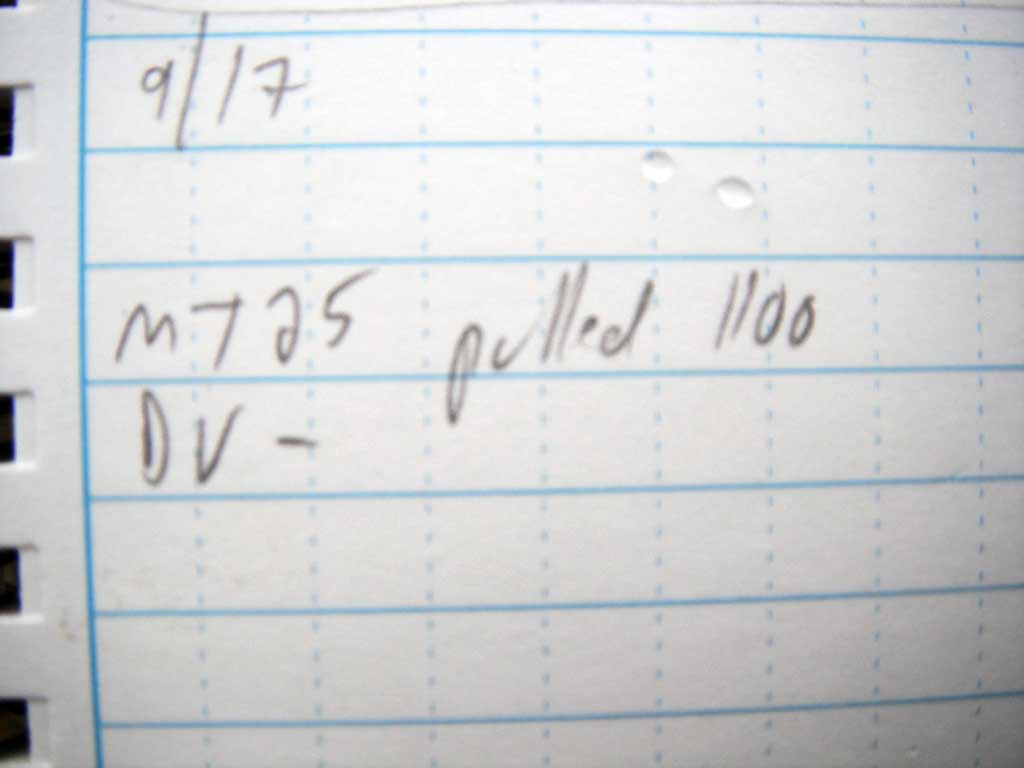 9/17
MT25 pulled 1100
DV -